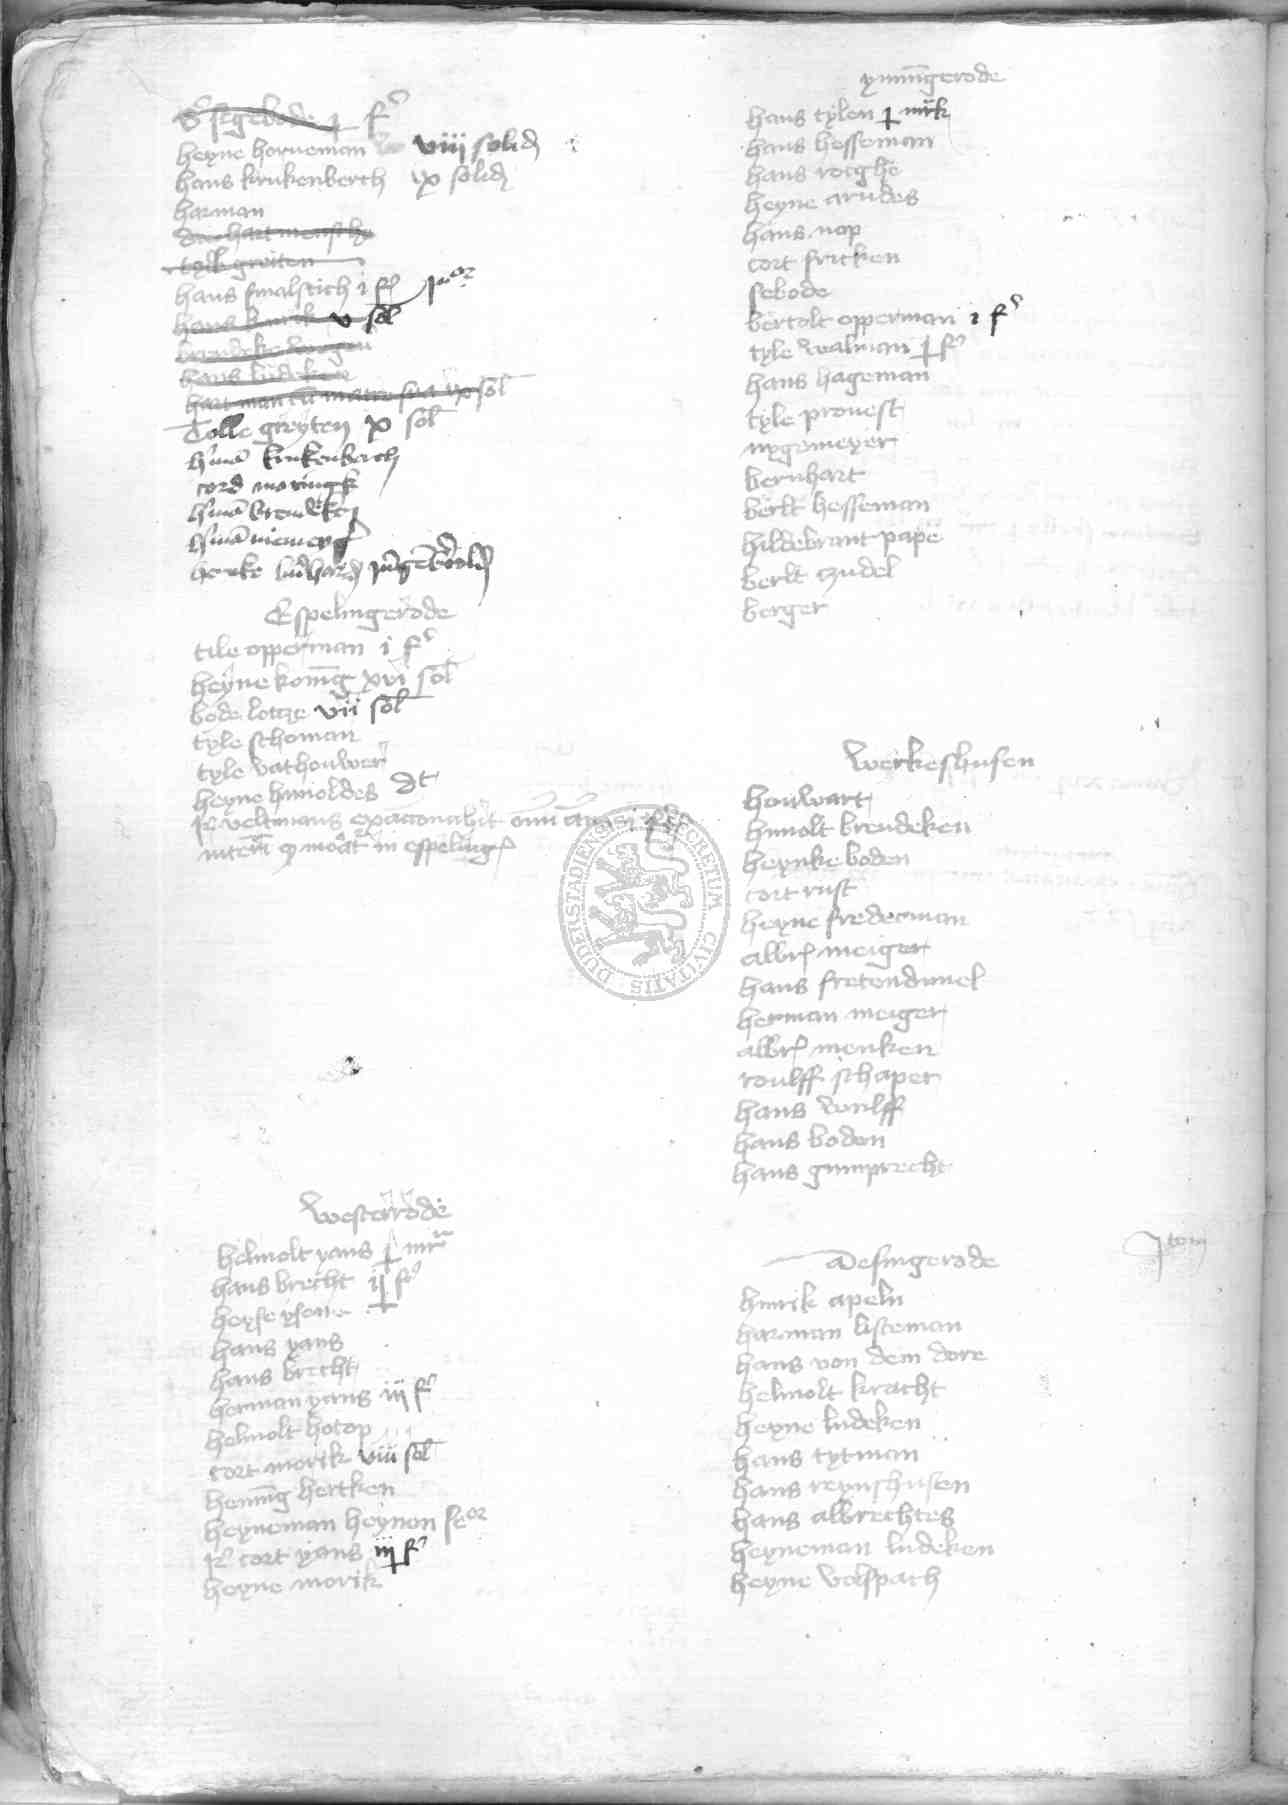 heyne horneman viii solid
hans krukenberch ix solid
harman
tyle greiten
hans smalstich i f
v sol
hans ludeken
hartman cu matre sua ix sol
Tolle greyten x sol
krukenberch
cord moringk
henke
Espelingerode
tile opperman i f
heyne konig xvi sol
bode lotze vii sol
tyle schoman
tyle vathouwer
heyne hinoldes dt
in espeling
Westerrode
helmolt yans
hans brecht
heyse ysen
hans yans
hans brecht
herman yans iii f
helmolt hotop
cort morik viii sol
hennig hertken
heyneman heynen
cort yans iii f
heyne morik
ymmigerode
hans tylen mrk
hans hesseman
hans rotghe
heyne arndes
hans nop
cort fricken
sebode
bertolt opperman i f
tyle walman f
hans hageman
tyle provest
nygemeyer
bernhart
berlt hesseman
hildebrant pape
berlt czudel
berger
Werkeshusen
houwart
hinolt brendeken
heynke boden
cort rust
heyne frederman
albr meiger
hans fretendunel
herman meiger
albr menken
roulff schaper
hans wulff
hans boden
hans gumprecht
Desingerode
Item
hinrik apeln
harman listeman
hans von dem dore
helmolt kracht
heyne ludeken
hans tytman
hans reynshusen
hans albrechtes
heyneman ludeken
heyne volspach
DUDERSTADIENSIS SECRETUM CIVITATIS